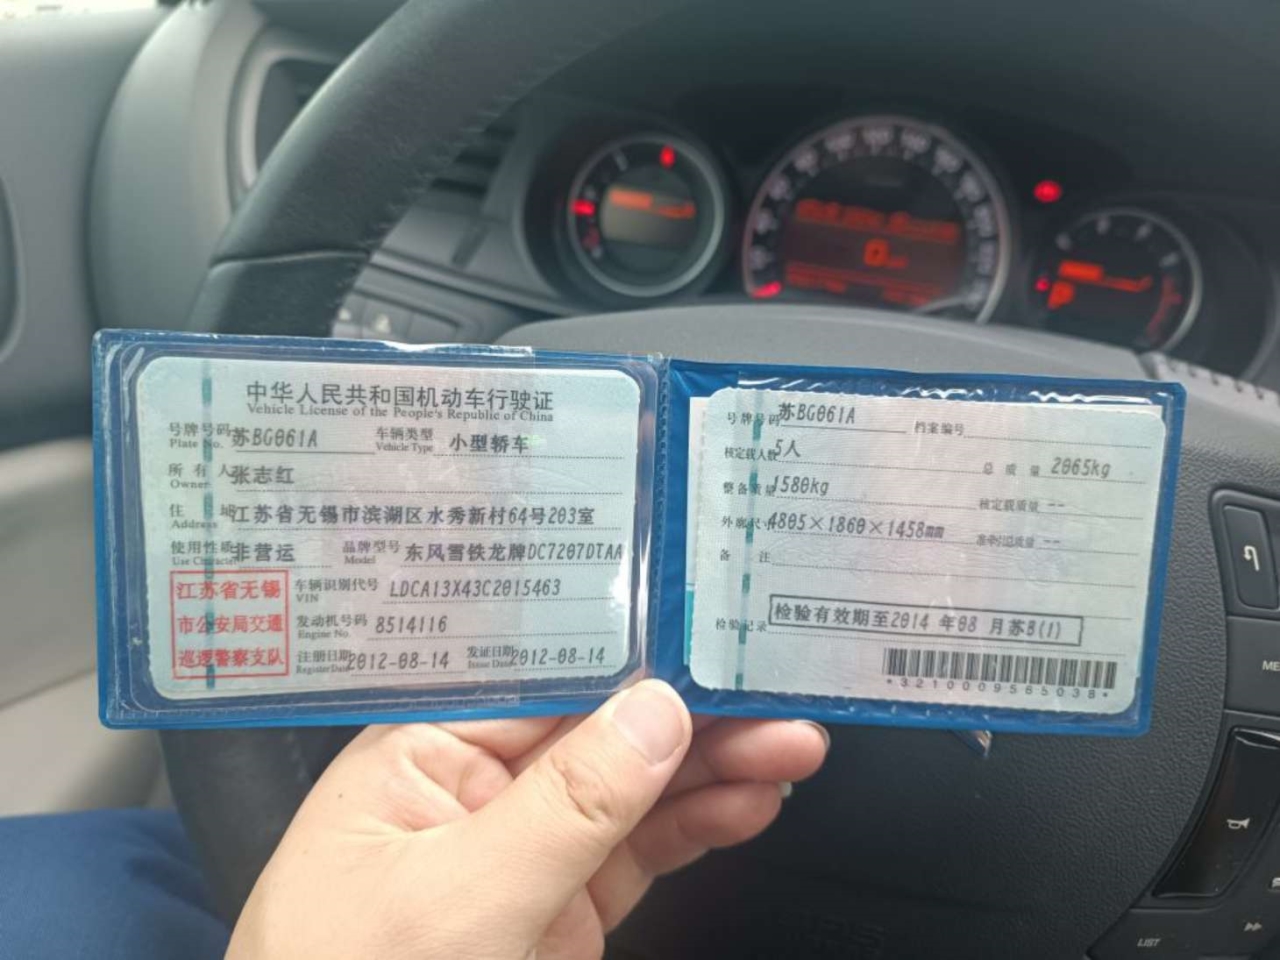 中华人民共和国机动车行驶证
Vehicle License of the People's Republic of China
号牌号码 苏BG061A 车辆类型 小型轿车
Plate No. Vehicle Type
所有人 张志红
Owner
住址 江苏省无锡市滨湖区水秀新村64号203室
Address
使用性质 非营运 品牌型号 东风雪铁龙牌DC7207DTAA
Use Character Model
江苏省无锡
市公安局交通
巡逻警察支队
车辆识别代号 LDCA13X43C2015463
VIN
发动机号码 8514116
Engine No.
注册日期 2012-08-14 发证日期 2012-08-14
Register Date Issue Date
号牌号码 苏BG061A 档案编号
核定载人数 5人 总质量 2065kg
整备质量 1580kg 核定载质量 --
外廓尺寸 4805×1860×1458mm 准牵引总质量 --
备注
检验记录 检验有效期至2014年08月苏B(1)
*3210009565038*
0
P
LIST